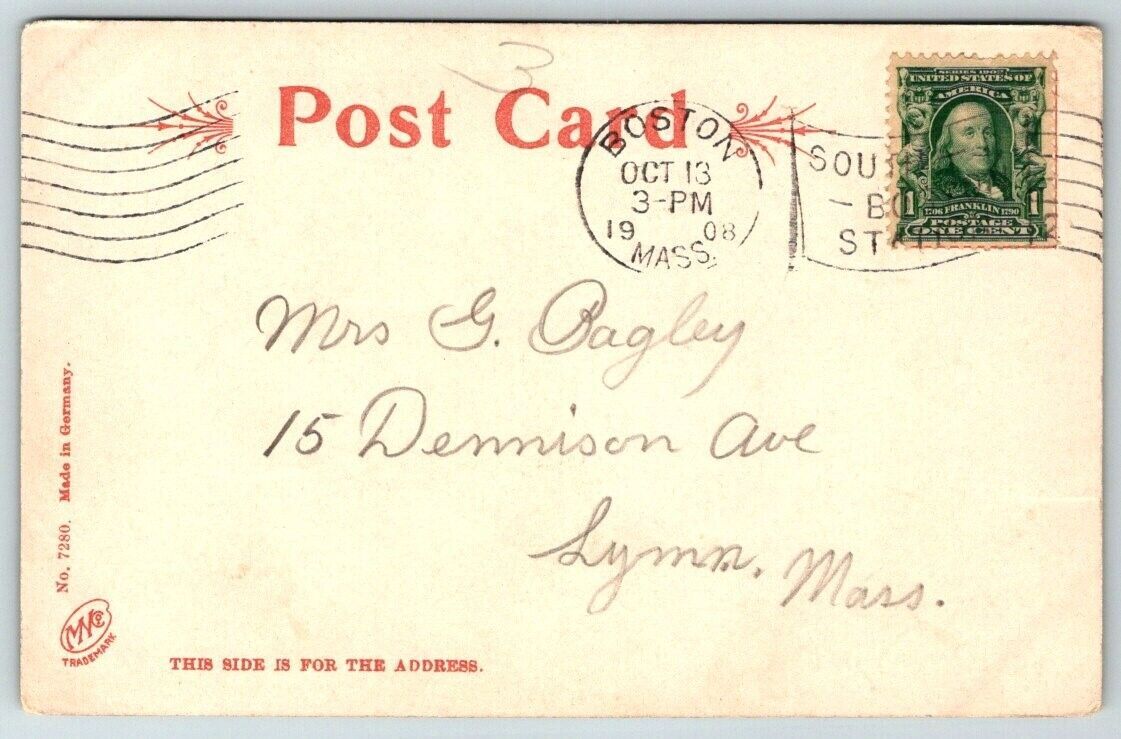 3
Post Card
BOSTON
OCT 13
3-PM
19 08
MASS.
SOU
BO
STA 12
SERIES 1902
UNITED STATES OF
AMERICA
1706 FRANKLIN 1790
1 POSTAGE 1
ONE CENT
Mrs G. Bagley
15 Dennison Ave
Lynn, Mass.
No. 7280. Made in Germany.
MNCo
TRADEMARK
THIS SIDE IS FOR THE ADDRESS.